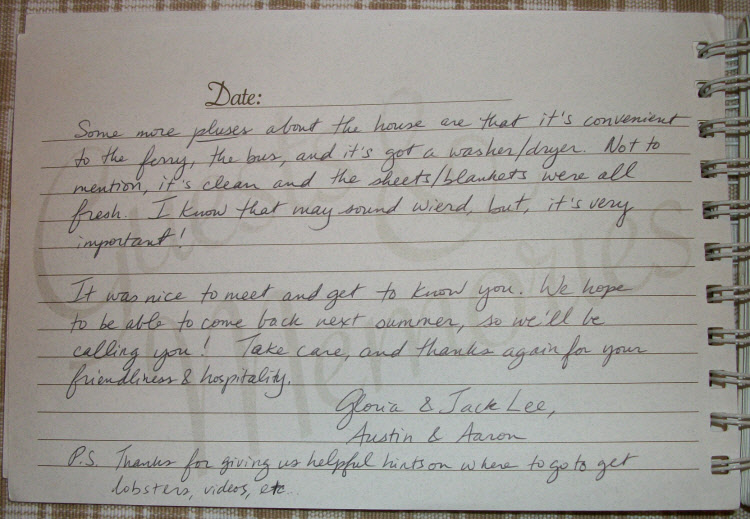 Date:
Some more pluses about the house are that it's convenient
to the ferry, the bus, and it's got a washer/dryer. Not to
mention, it's clean and the sheets/blankets were all
fresh. I know that may sound wierd, but, it's very
important!
It was nice to meet and get to know you. We hope
to be able to come back next summer, so we'll be
calling you! Take care, and thanks again for your
friendliness & hospitality.
Gloria & Jack Lee,
Austin & Aaron
P.S. Thanks for giving us helpful hints on where to go to get
lobsters, videos, etc.
Guests &
Memories